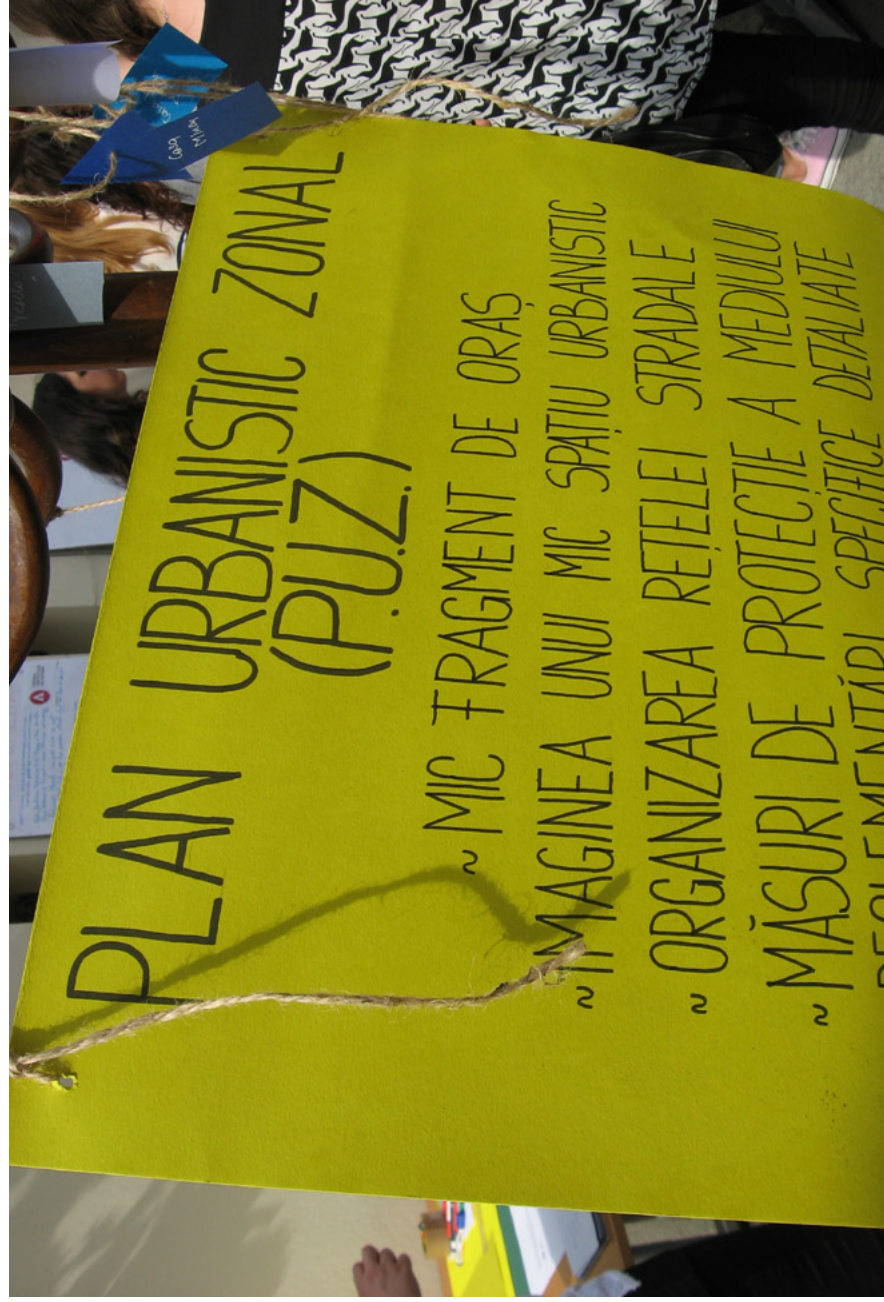 PLAN URBANISTIC ZONAL
(P.U.Z.)
~ MIC FRAGMENT DE ORAȘ
~ IMAGINEA UNUI MIC SPAȚIU URBANISTIC
~ ORGANIZAREA REȚELEI STRADALE
~ MĂSURI DE PROTECȚIE A MEDIULUI
REGLEMENTĂRI SPECIFICE DETALIATE